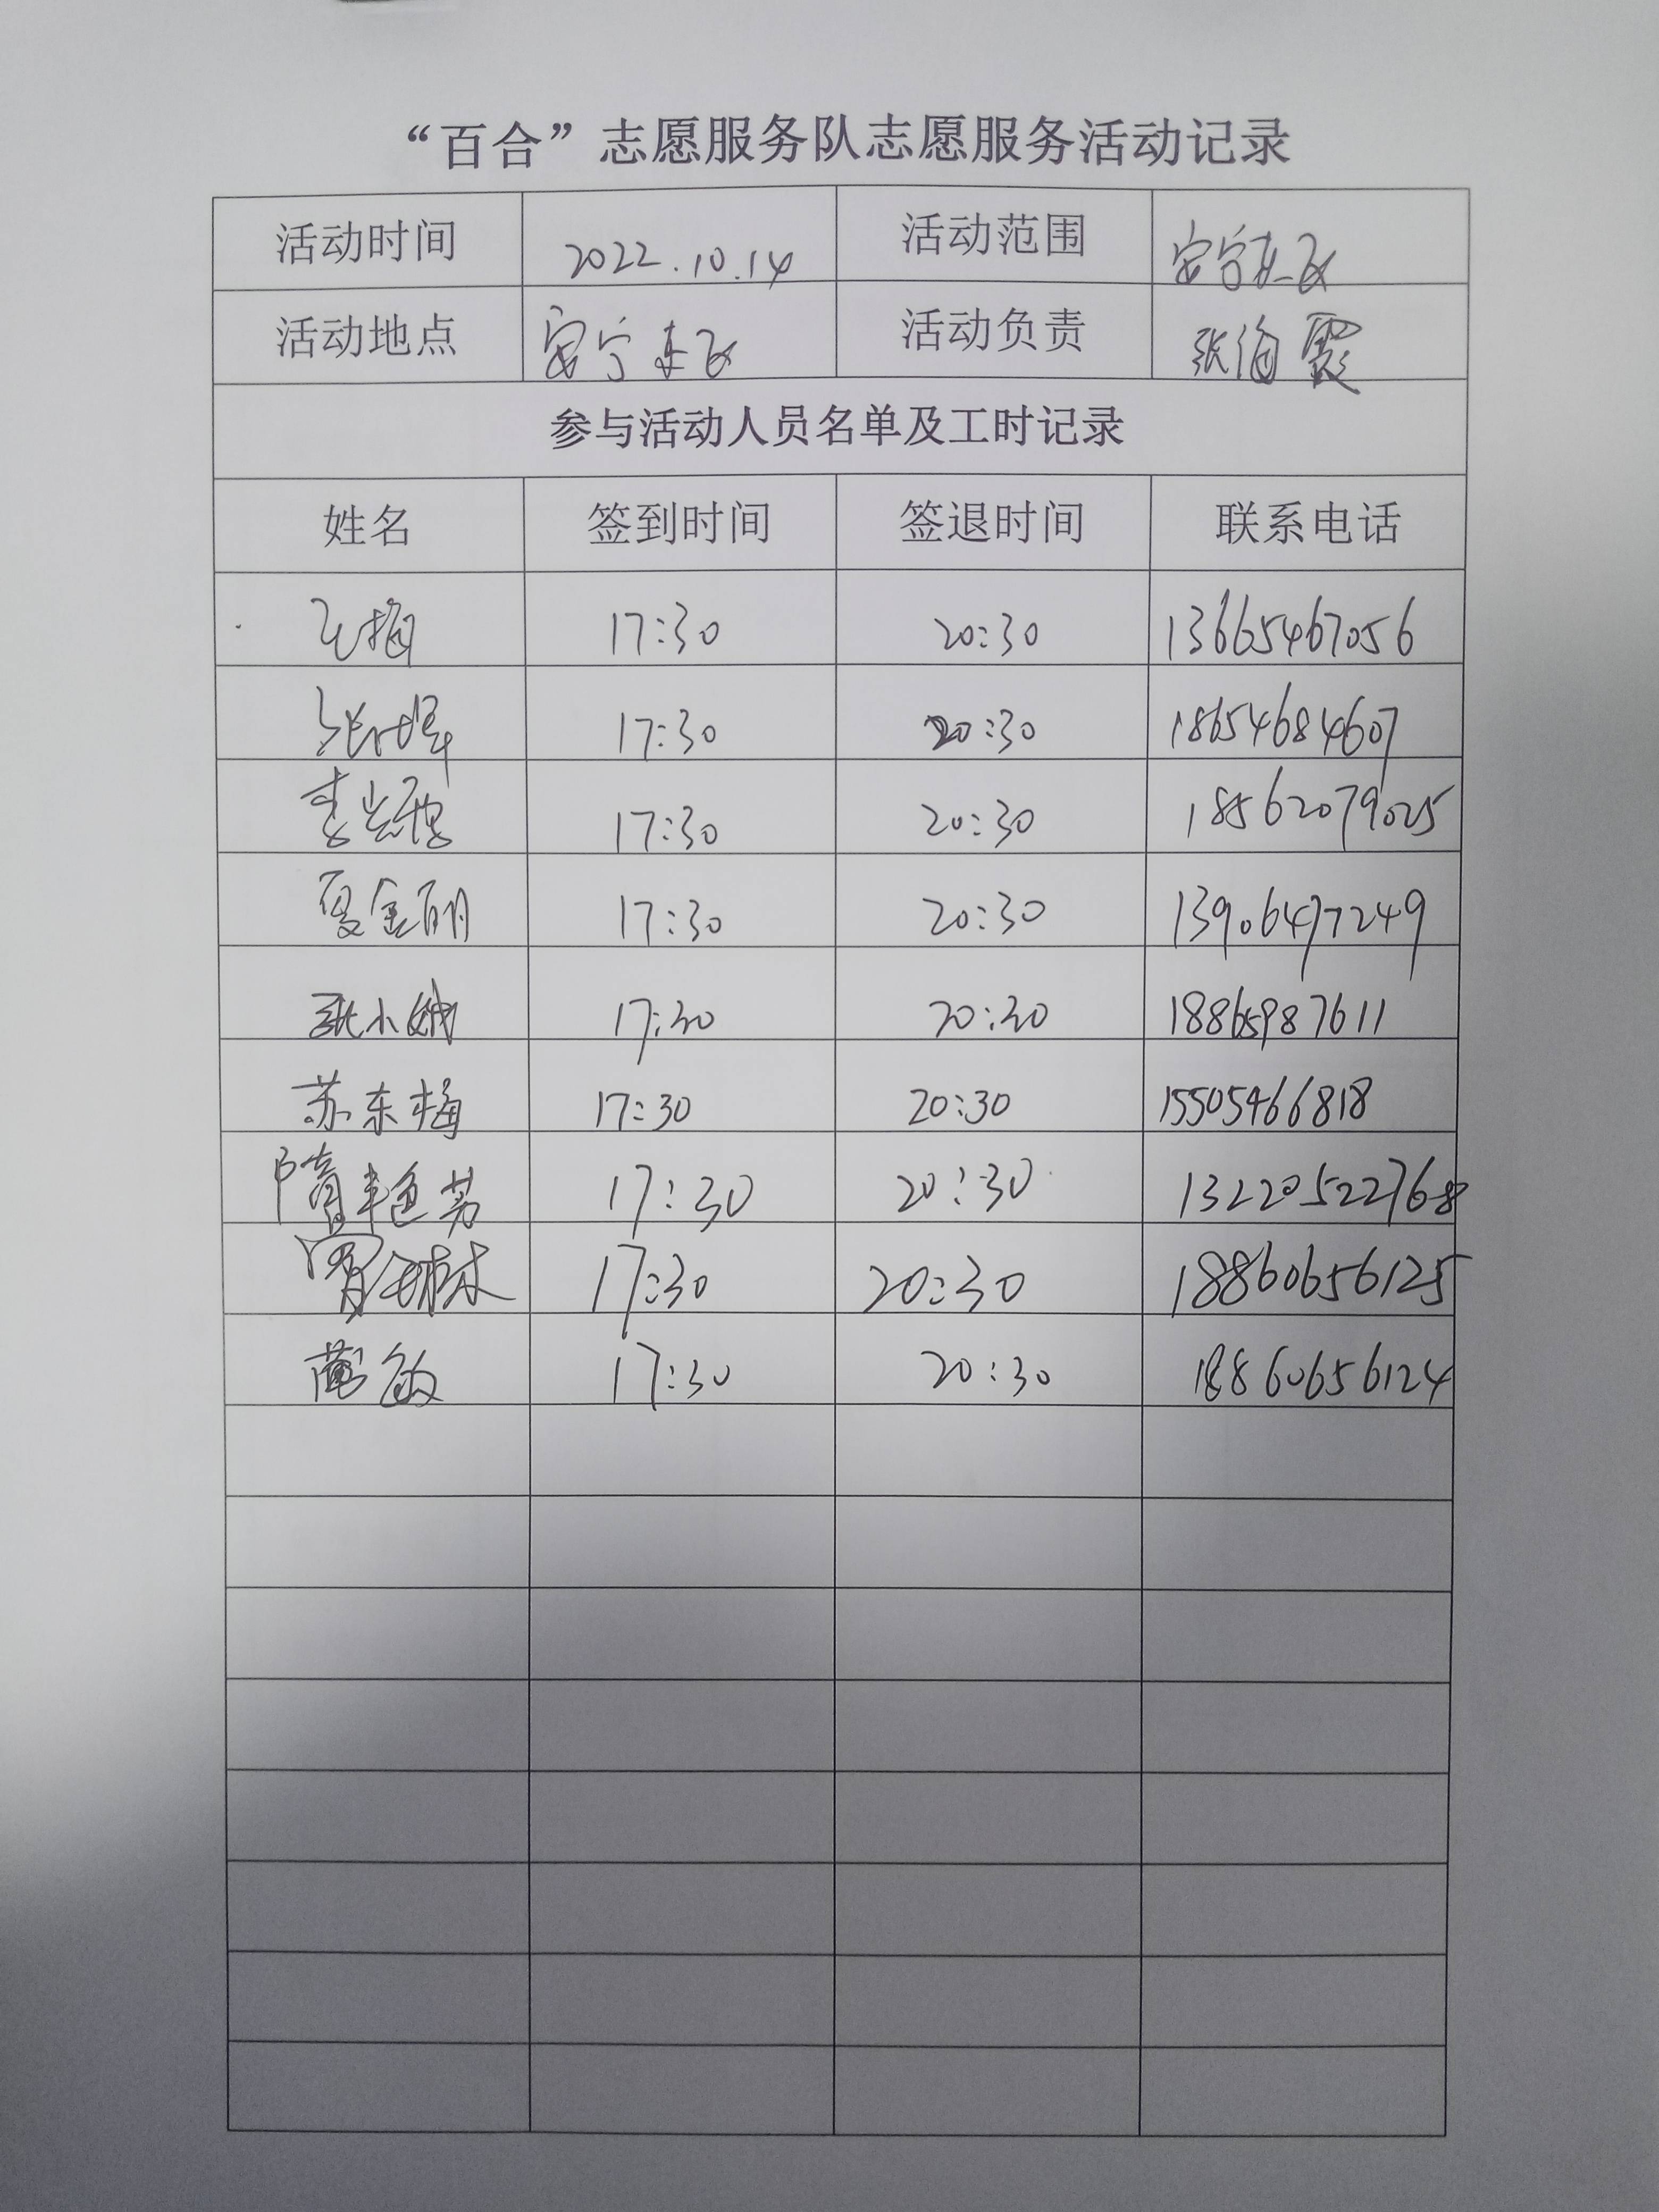 “百合”志愿服务队志愿服务活动记录
活动时间 2022.10.14 活动范围 安宁东区
活动地点 安宁东区 活动负责 张海霞
参与活动人员名单及工时记录
姓名 签到时间 签退时间 联系电话
王梅 17:30 20:30 13665467056
17:30 20:30 18654684607
17:30 20:30 18562079025
夏金丽 17:30 20:30 13906497249
张小娥 17:30 20:30 18865987611
苏东梅 17:30 20:30 15505466818
隋艳芳 17:30 20:30 13220522768
17:30 20:30 18860656125
敏 17:30 20:30 18860656124